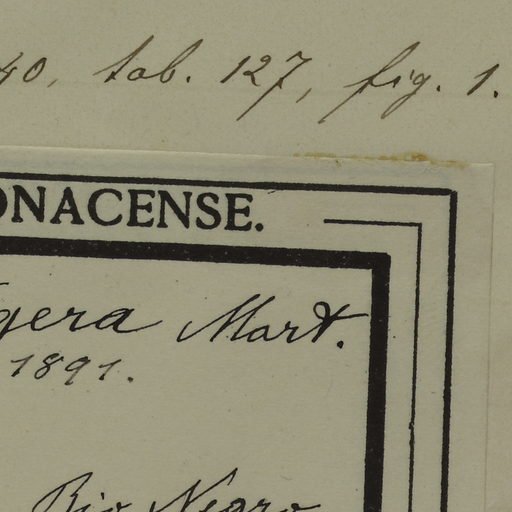 40, tab. 127, fig. 1.
ONACENSE.
gera Mart.
1891.
Rio Negro